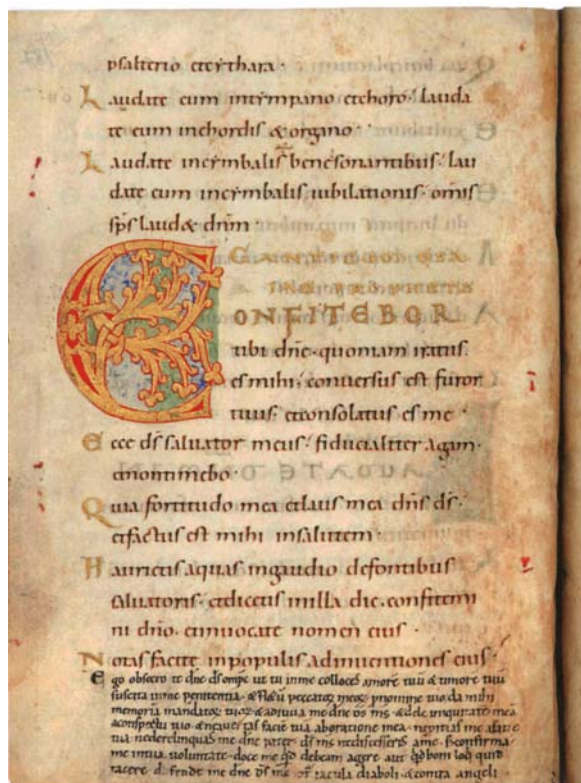 psalterio et cythara·
Laudate eum in tympano et choro· lauda
te eum in chordis & organo·
Laudate in cymbalis bene sonantibus· lau
date eum in cymbalis iubilationis· omis
sps laud& dnm·
CANTICU
CONFITEBOR
tibi dne· quoniam iratus
es mihi· conversus est furor
tuus· et consolatus es me·
Ecce ds salvator meus· fiducialiter agam·
et non timebo·
Quia fortitudo mea et laus mea dns ds·
et factus est mihi in salutem·
Haurietis aquas in gaudio de fontibus
salvatoris· et dicetis in illa die· confitemi
ni dno· et invocate nomen eius·
Notas facite in populis adinventiones eius·
Ego obsecro te dne ds ompe ut tu in me colloces amore tuu & timore tuu
suscita in me penitentia· & peccatoz meoz· da mihi
memoria mandatoz tuoz· & adiuva me dne ds ms· & dele iniquitate mea
a conspectu tuo· & ne avertas facie tua
ne derelinquas me dne pater· & ds ms ne discesseris a me· s; confirma
me in tua voluntate· doce me qd debeam agere aut qd bom loqi quid
tacere· defende me dne ds ms diaboli· & contra angeli